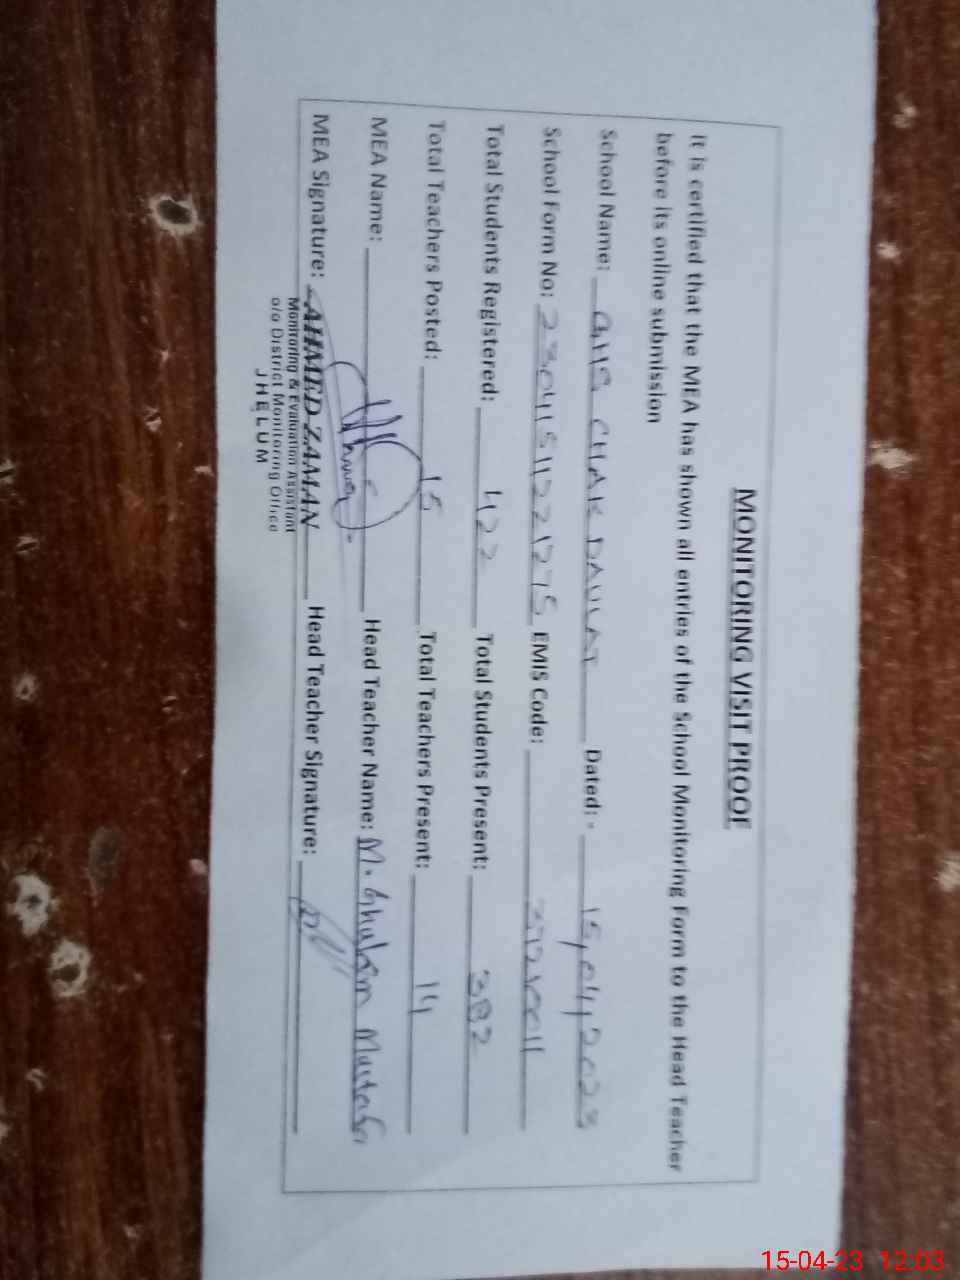 MONITORING VISIT PROOF
It is certified that the MEA has shown all entries of the School Monitoring Form to the Head Teacher
before its online submission
School Name: GHS CHAK DAULAT Dated:- 15,04,2023
School Form No: EMIS Code:
Total Students Registered: 422 Total Students Present: 382
Total Teachers Posted: 15 Total Teachers Present: 14
MEA Name: Head Teacher Name: M. Ghulam Mustafa
MEA Signature: AHMED ZAMAN Head Teacher Signature:
Monitoring & Evaluation Assistant
o/o District Monitoring Office
JHELUM
15-04-23 12:03